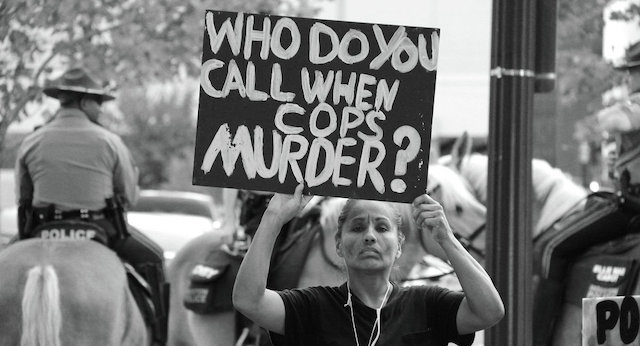 WHO DO YOU
CALL WHEN
COPS
MURDER?
POLICE
PO